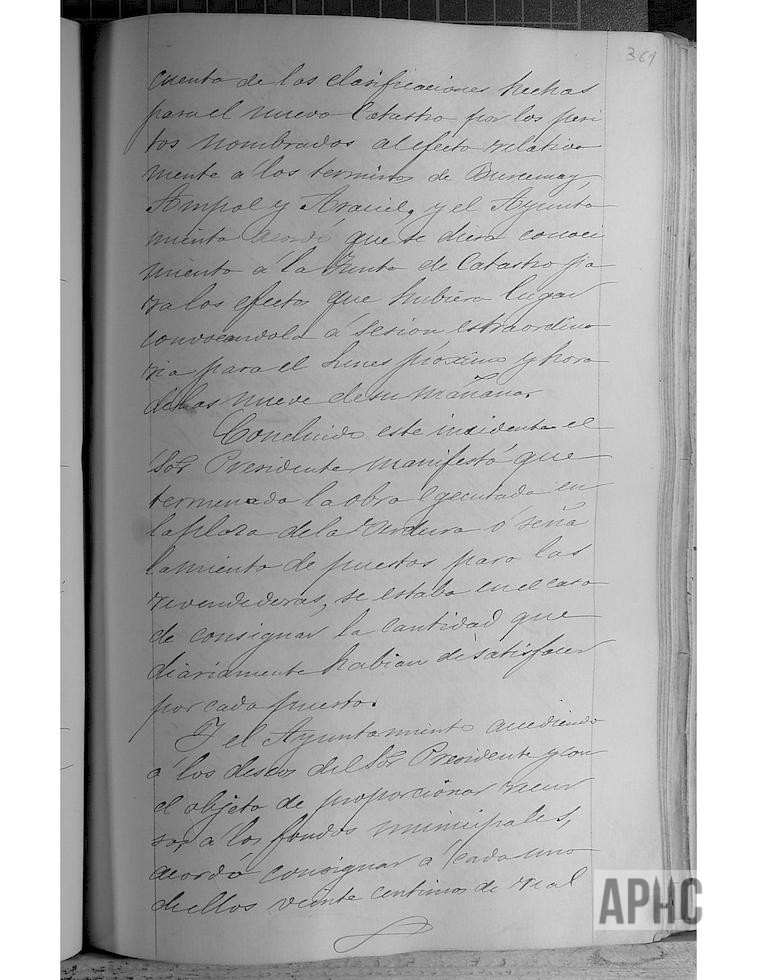 361
cuenta de las clasificaciones hechas
para el nuevo Catastro por los peri
tos nombrados al efecto relativa
mente á los terminos de
Ampol y Araciel, y el Ayunta
miento acordó que se diera conoci
miento á la Junta de Catastro pa
ra los efectos que hubiera lugar
convocandola á sesion estraordina
ria para el lunes próximo y hora
de las nueve de su mañana.
Concluido este incidente el
Sor Presidente manifestó que
terminada la obra egecutada en
la plaza de la Verdura ó seña
lamiento de puestos para las
revendederas, se estaba en el caso
de consignar la cantidad que
diariamente habian de satisfacer
por cada puesto.
Y el Ayuntamiento accediendo
á los deseos del Sor Presidente y con
el objeto de proporcionar recur
sos á los fondos municipales,
acordó consignar á cada uno
de ellos veinte centimos de real
APHC